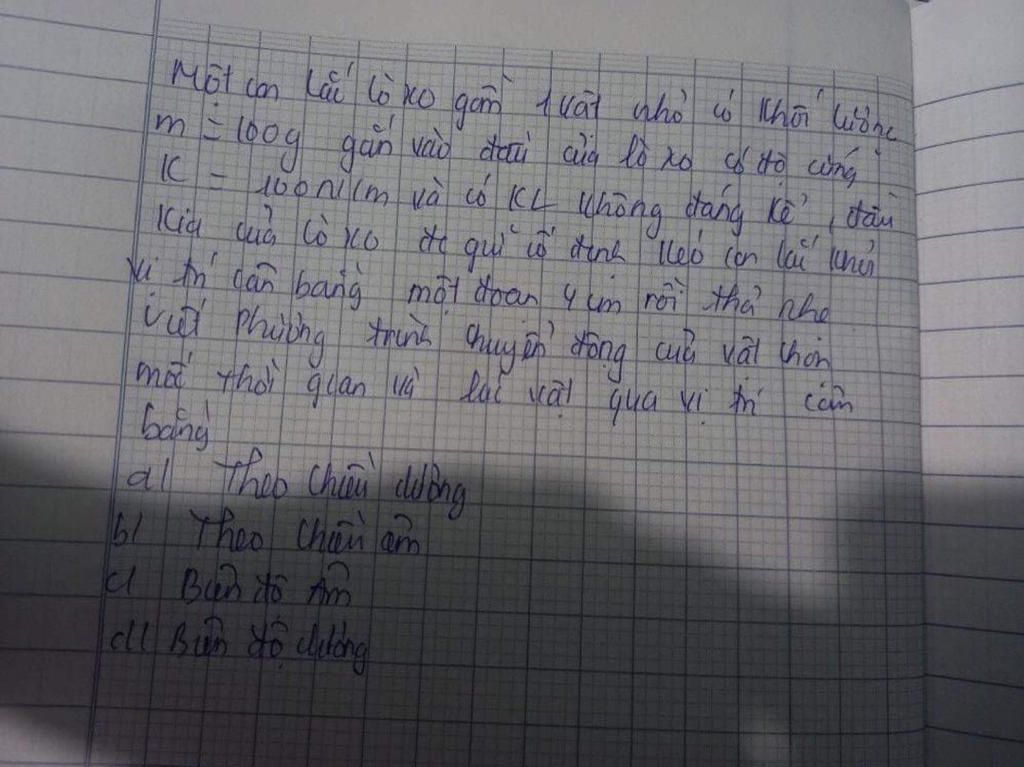 Một con lắc lò xo gồm 1 vật nhỏ có khối lượng
m = 100g gắn vào đầu của lò xo có độ cứng
K = 100N/m và có KL không đáng kể, đầu
kia của lò xo đc giữ cố định kéo con lắc khỏi
vị trí cân bằng một đoạn 4cm rồi thả nhẹ
viết phương trình chuyển động của vật chọn
mốc thời gian là lúc vật qua vị trí cân
bằng
a/ Theo chiều dương
b/ Theo chiều âm
c/ Biên độ âm
d/ Biên độ dương